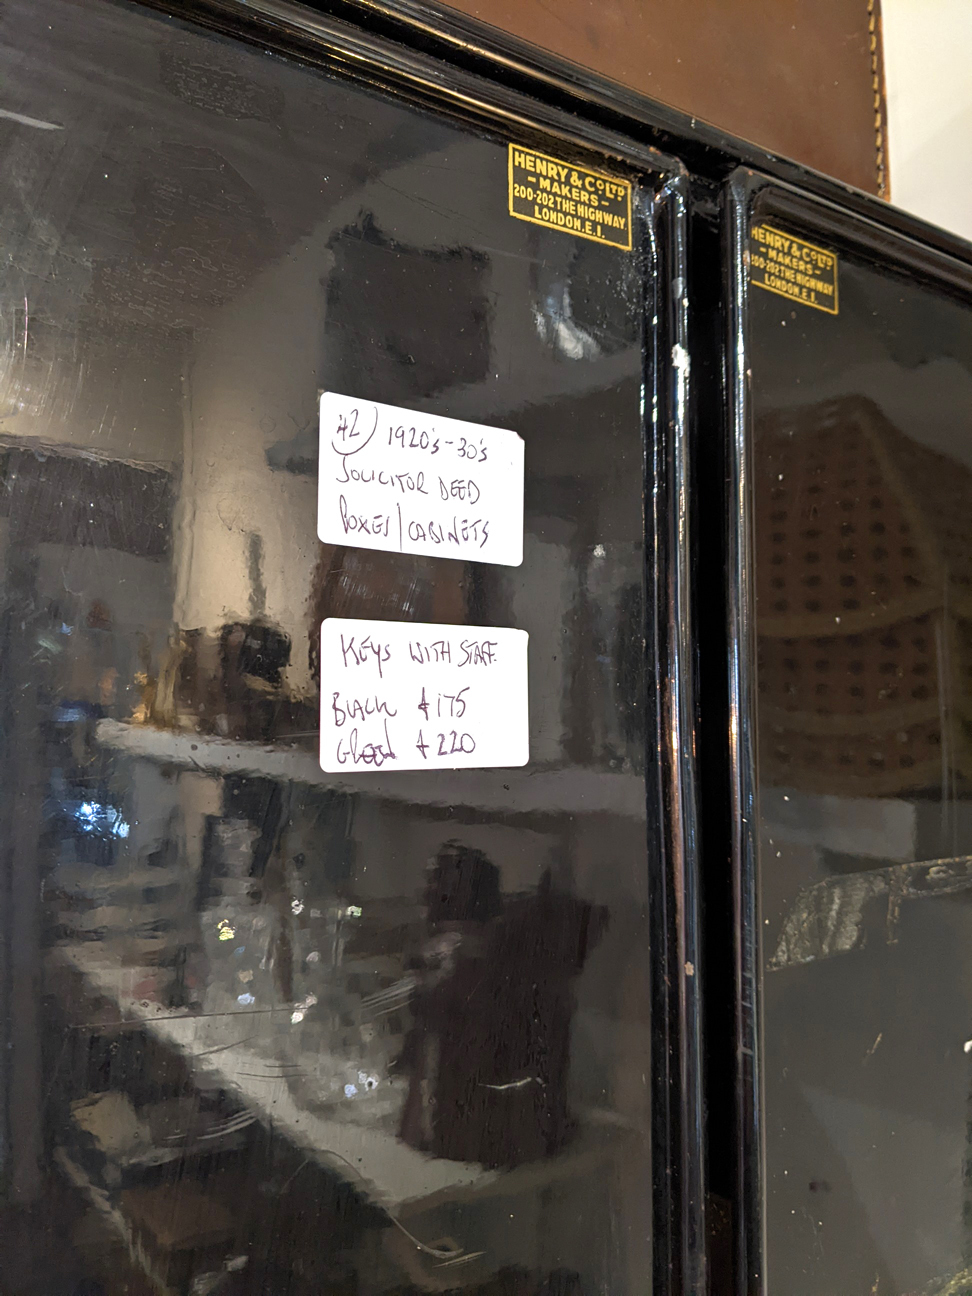 HENRY & CO LTD
- MAKERS -
200-202 THE HIGHWAY
LONDON. E.1.
HENRY & CO LTD
- MAKERS -
200-202 THE HIGHWAY
LONDON. E.1.
42) 1920's-30's
SOLICITOR DEED
BOXES/CABINETS
KEYS WITH STAFF.
BLACK £175
£220